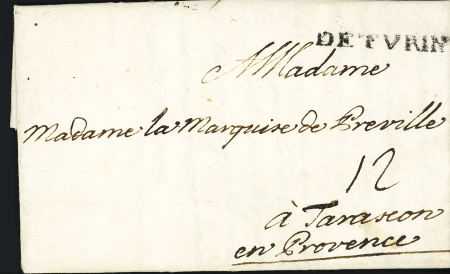 DE TVRIN
A Madame
Madame la Marquise de Preville
12
à Tarascon
en Provence